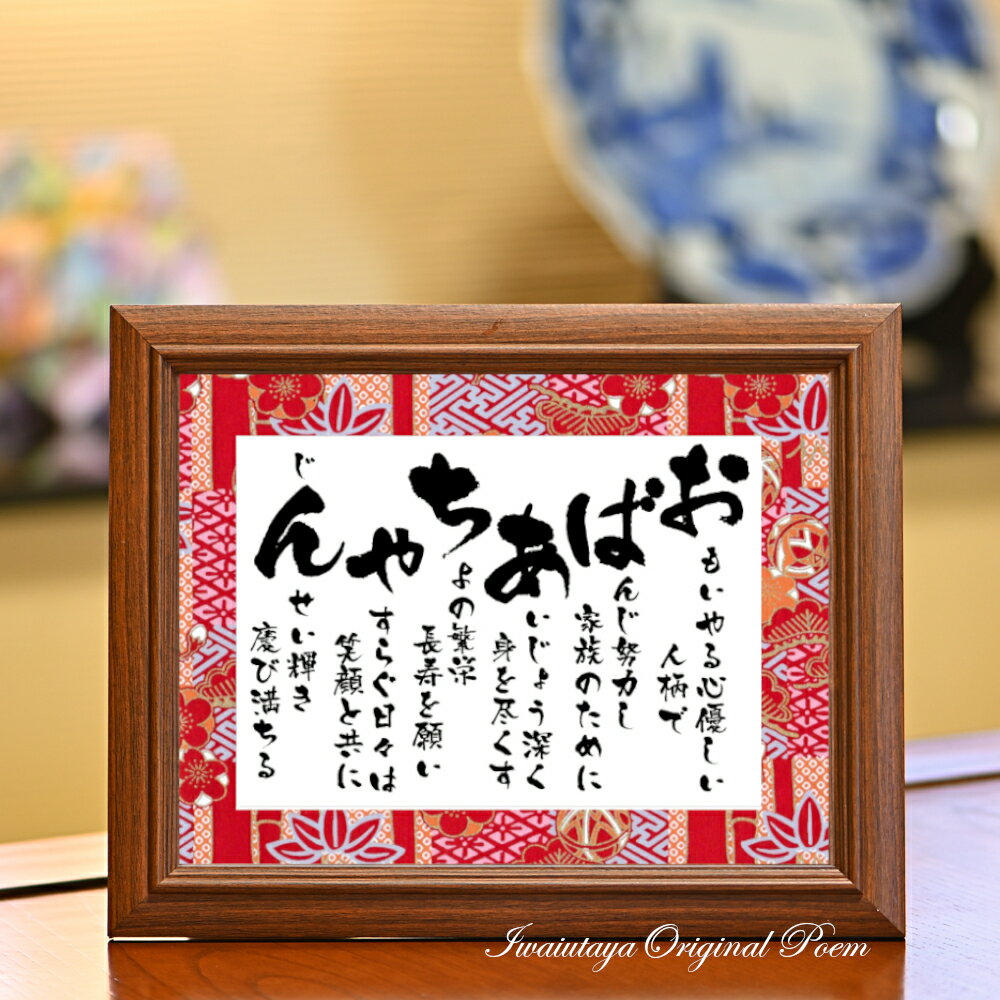 おもいやる心優しい
人柄で
ばんじ努力し
家族のために
あいじょう深く
身を尽くす
ちよの繁栄
長寿を願い
やすらぐ日々は
笑顔と共に
じんせい輝き
慶び満ちる
Iwaiutaya Original Poem